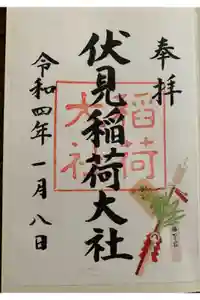 奉拝
伏見稲荷大社
稲荷
大社
令和四年一月八日